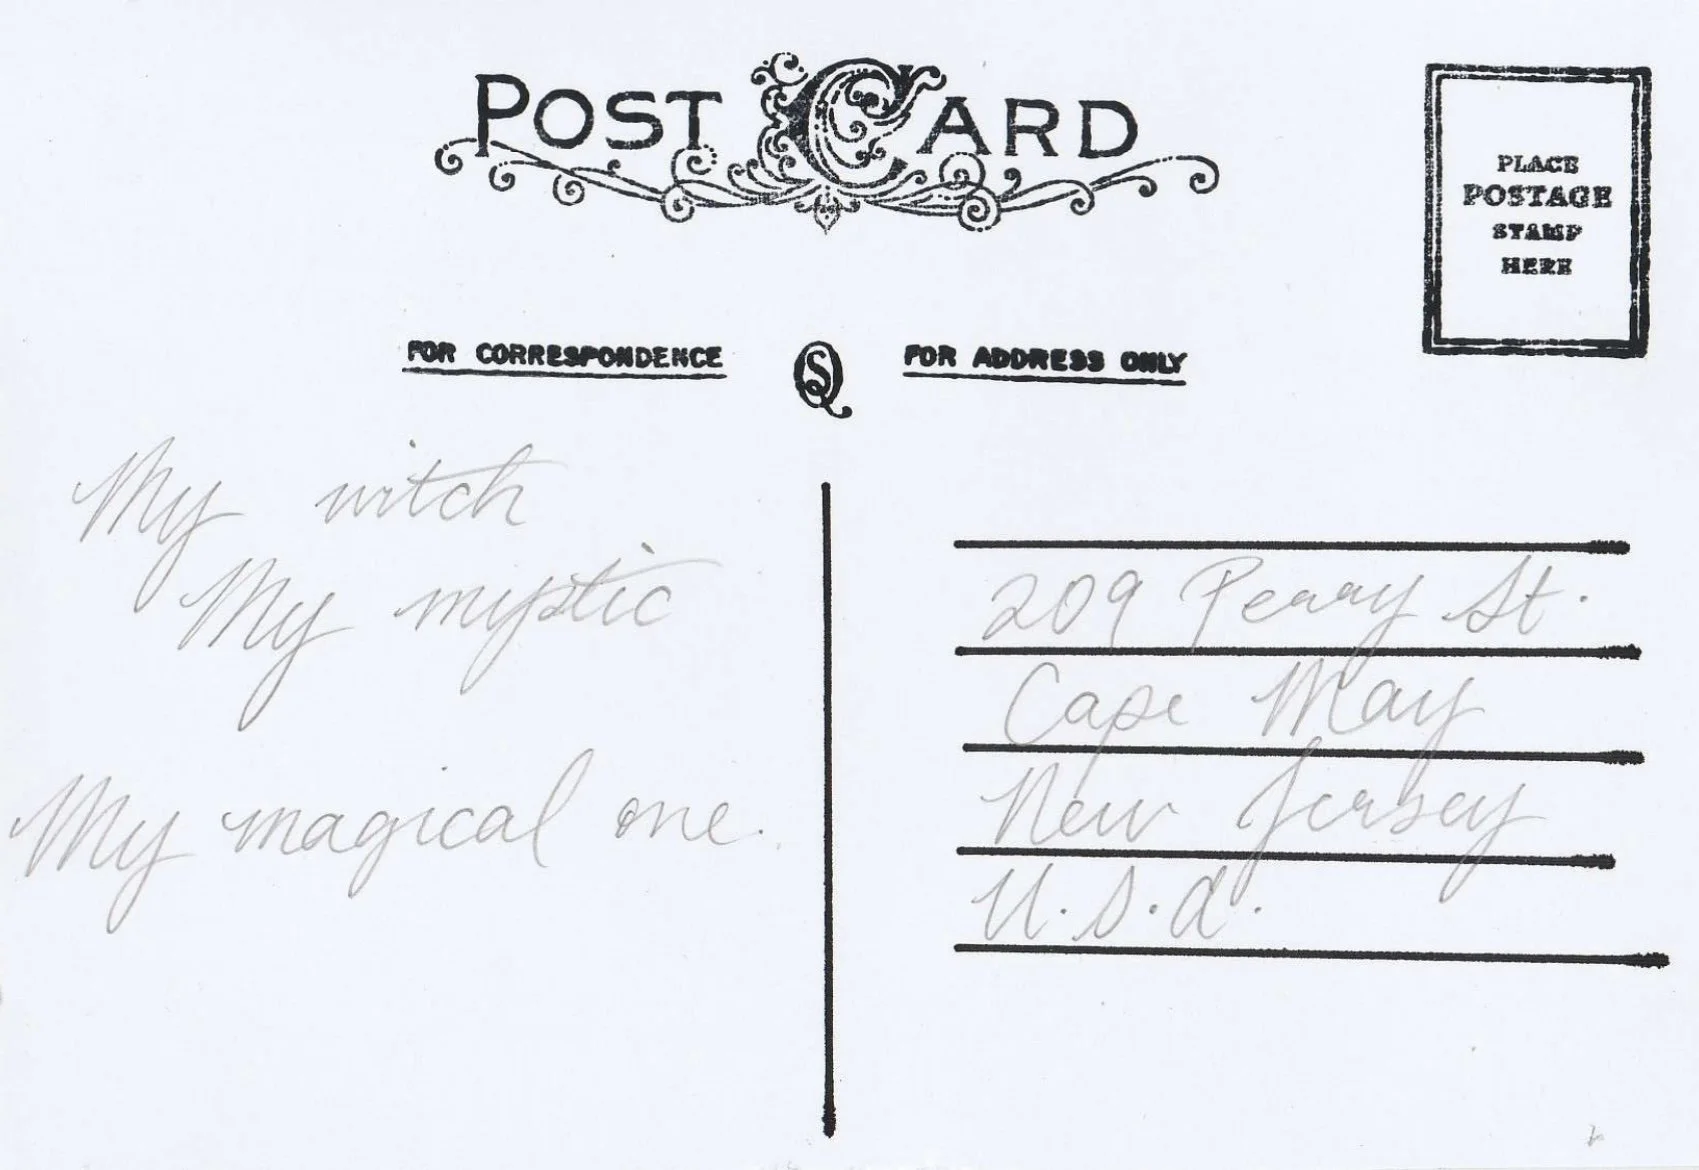 POST CARD
PLACE
POSTAGE
STAMP
HERE
FOR CORRESPONDENCE
SQ
FOR ADDRESS ONLY
My witch
My mystic
My magical one.
209 Perry St.
Cape May
New Jersey
U.S.A.